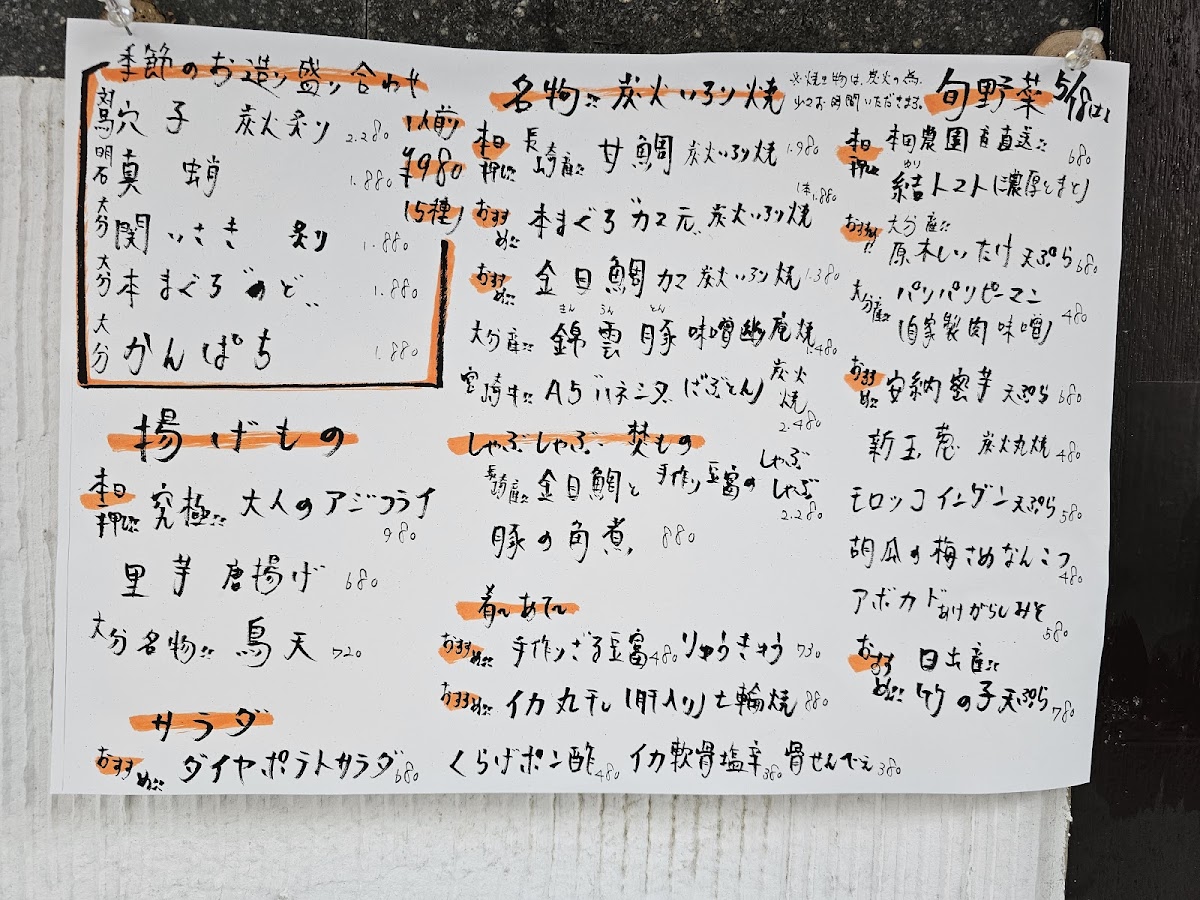 季節のお造り盛り合わせ
1人前り
¥980
(5種)
対馬 穴子 炭火炙り 2.280
明石 真蛸 1.880
大分 関いさき 炙り 1.880
大分 本まぐろのど 1.880
大分 かんぱち 1.880
揚げもの
本日押し!! 究極!! 大人のアジフライ 980
里芋 唐揚げ 680
大分名物!! 鳥天 720
サラダ
おすすめ!! ダイヤポテトサラダ 680
名物!! 炭火いろり焼
※焼き物は、炭火の為、
少々お時間いただきます。
本日押し!! 長崎産!! 甘鯛 炭火いろり焼 1.980
おすすめ!! 本まぐろカマ元 炭火いろり焼 1本1.880
おすすめ!! 金目鯛カマ 炭火いろり焼 1.380
大分産!! 錦雲豚 味噌幽庵焼 1.480
きんうんとん
宮崎牛!! A5ハネシタ(ざぶとん) 炭火焼 2.480
しゃぶしゃぶ・焚もの
長崎産!! 金目鯛と手作り豆富のしゃぶしゃぶ 2.280
豚の角煮 880
肴〜あて〜
おすすめ!! 手作りざる豆富 480 りゅうきゅう 730
おすすめ!! イカ丸干し(肝入り)七輪焼 880
くらげポン酢 480 イカ軟骨塩辛 380 骨せんべえ 380
旬野菜 5/18(土)
本日押し!! 本田農園産直送!! 680
結トマト(濃厚とまと)
おすすめ!! 大分産!!
原木しいたけ 天ぷら 680
大分産!! パリパリピーマン
(自家製肉味噌) 480
おすすめ!! 安納密芋 天ぷら 680
新玉葱 炭火丸焼 480
モロッコインゲン天ぷら 580
胡瓜の梅さめなんこつ 480
アボカドあげからしみそ 580
おすすめ!! 日出産!!
竹の子天ぷら 780